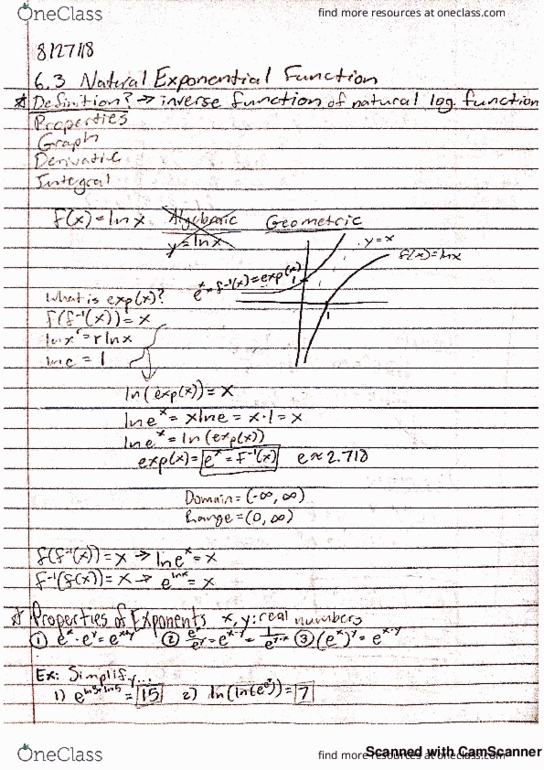 OneClass
find more resources at oneclass.com
8/27/18
6.3 Natural Exponential Function
Definition? → inverse function of natural log. function
Properties
Graph
Derivative
Integral
f(x) = ln x Algebraic Geometric
y = ln x
y = x
f(x) = lnx
eˣ = f⁻¹(x) = exp(x)
1
1
What is exp(x)?
f(f⁻¹(x)) = x
ln xʳ = r ln x
ln e = 1
ln(exp(x)) = x
ln eˣ = x ln e = x · 1 = x
ln eˣ = ln(exp(x))
exp(x) = eˣ = f⁻¹(x) e ≈ 2.718
Domain = (-∞, ∞)
Range = (0, ∞)
f(f⁻¹(x)) = x → ln eˣ = x
f⁻¹(f(x)) = x → e^(ln x) = x
Properties of Exponents x, y: real numbers
① eˣ · eʸ = eˣ⁺ʸ ② eˣ/eʸ = eˣ⁻ʸ = 1/eʸ⁻ˣ ③ (eˣ)ʸ = eˣ·ʸ
Ex: Simplify...
1) = 15 2) = 7
OneClass
find more resources at oneclass.com
Scanned with CamScanner